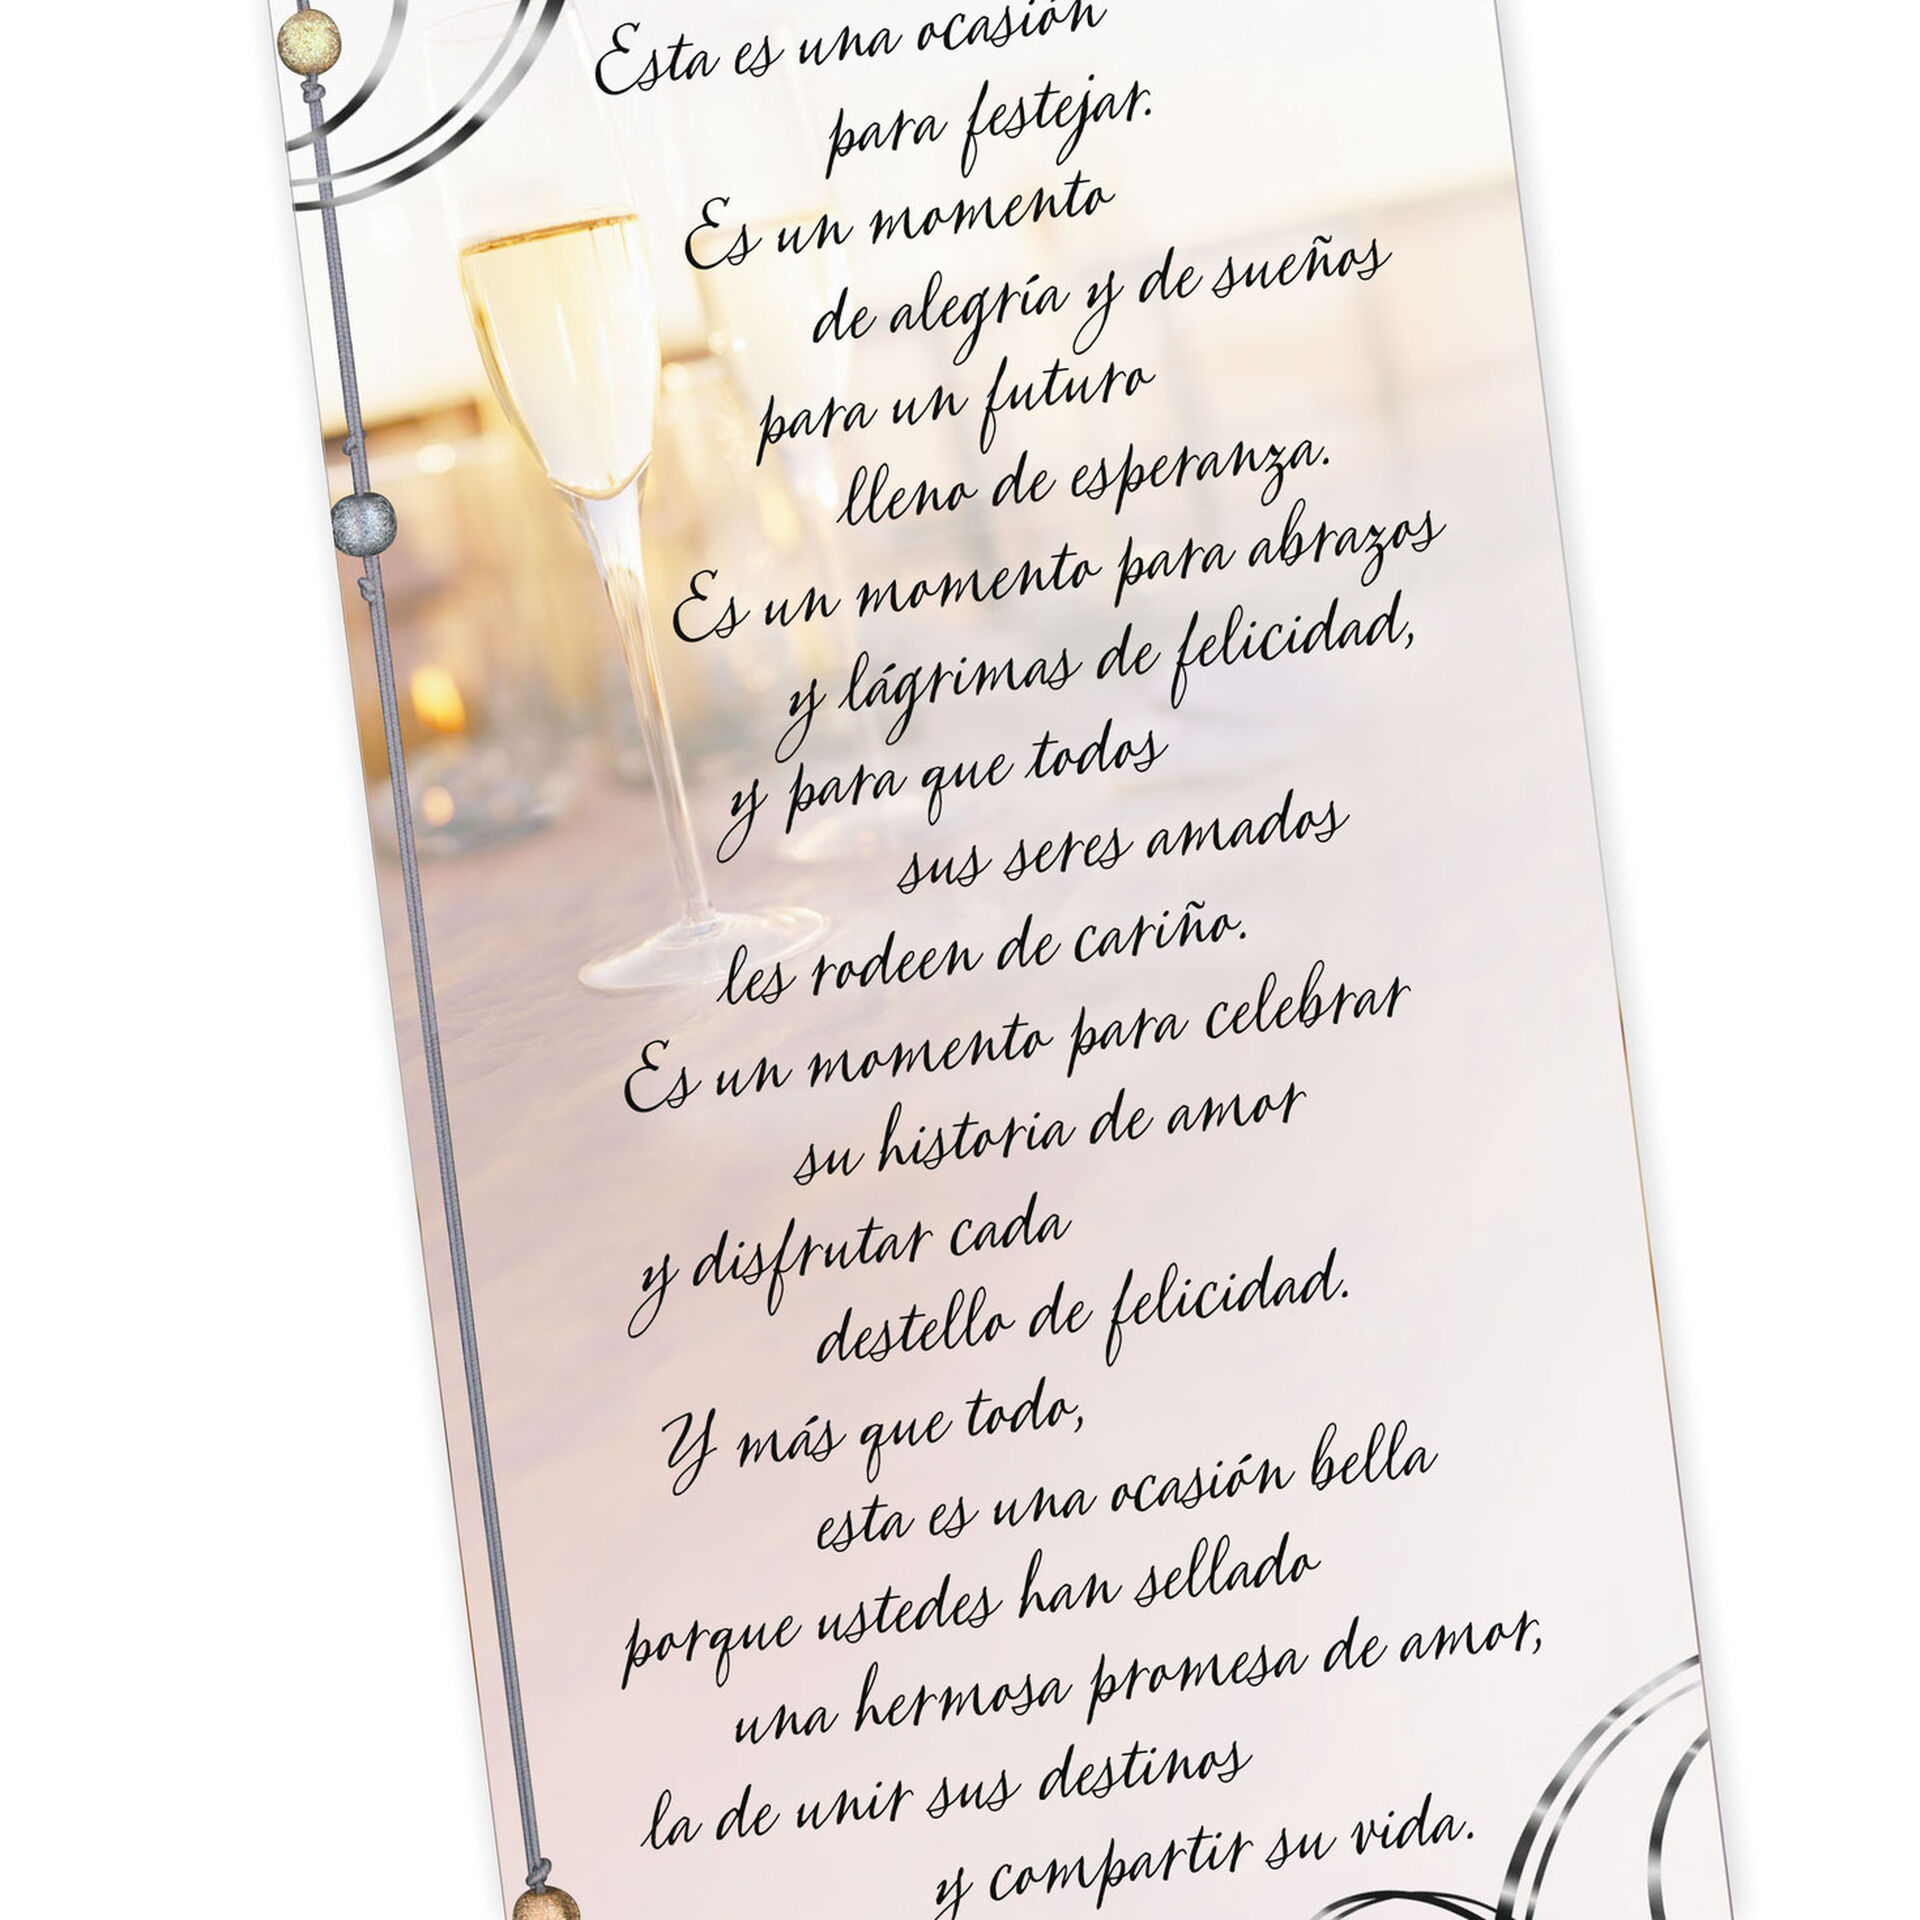 Esta es una ocasión
para festejar.
Es un momento
de alegría y de sueños
para un futuro
lleno de esperanza.
Es un momento para abrazos
y lágrimas de felicidad,
y para que todos
sus seres amados
les rodeen de cariño.
Es un momento para celebrar
su historia de amor
y disfrutar cada
destello de felicidad.
Y más que todo,
esta es una ocasión bella
porque ustedes han sellado
una hermosa promesa de amor,
la de unir sus destinos
y compartir su vida.